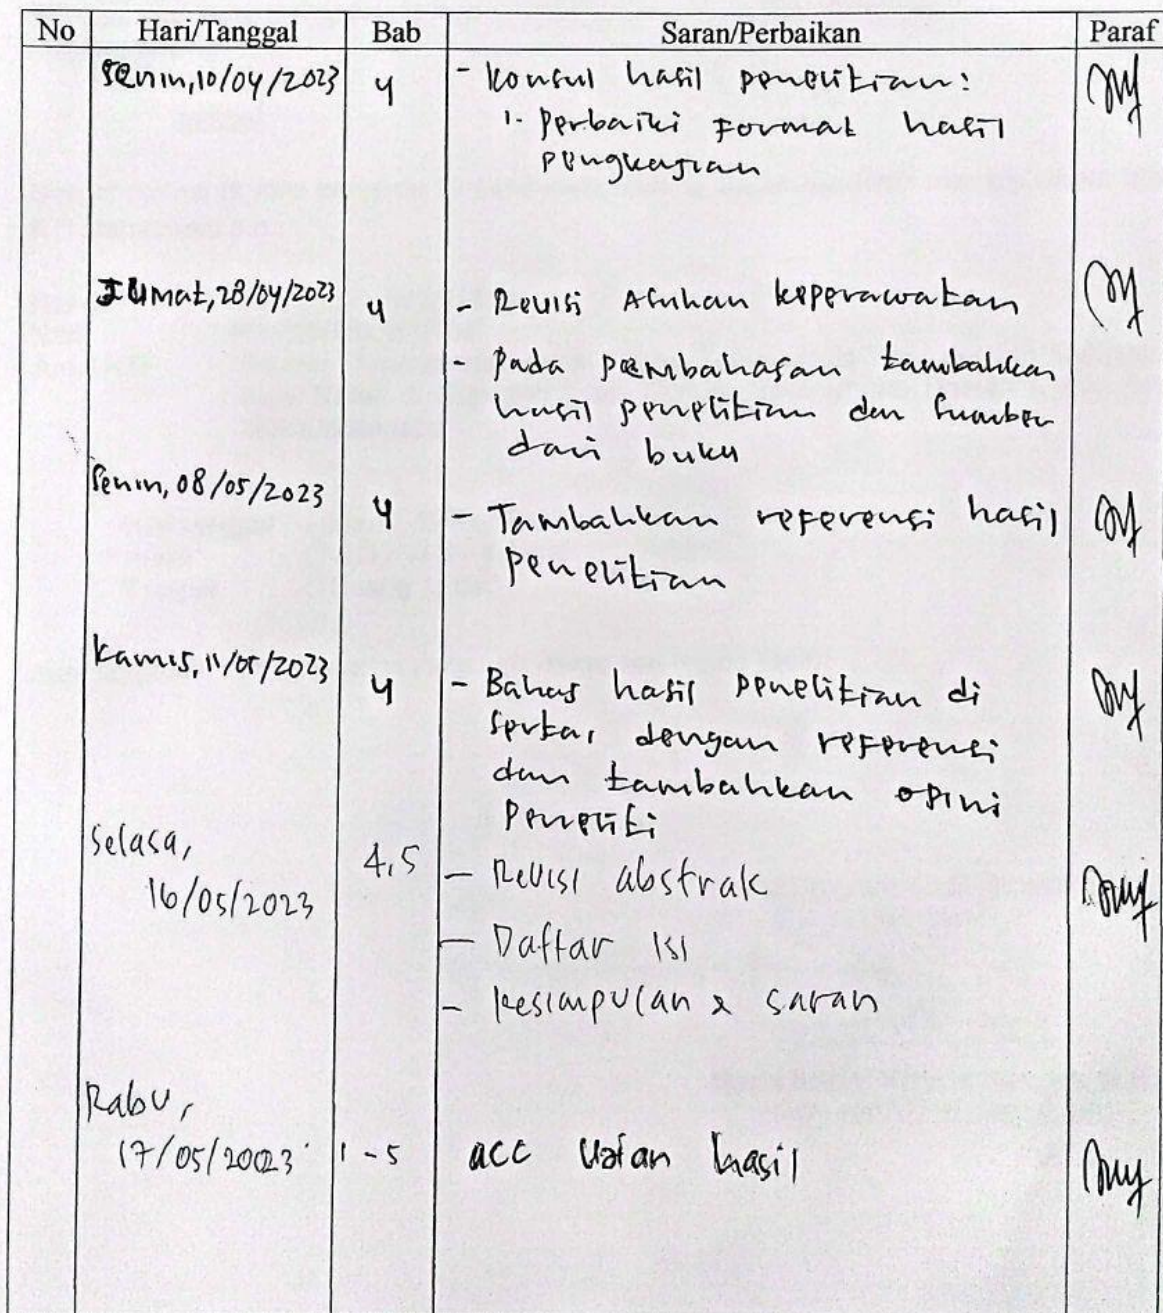 No Hari/Tanggal Bab Saran/Perbaikan Paraf
Senin, 10/04/2023 4 - Konsul hasil penelitian:
1. Perbaiki Format hasil
pengkajian
Jumat, 28/04/2023 4 - Revisi Asuhan keperawatan
- Pada pembahasan tambahkan
hasil penelitian dan Sumber
dari buku
Senin, 08/05/2023 4 - Tambahkan referensi hasil
penelitian
Kamis, 11/05/2023 4 - Bahas hasil penelitian di
sertai dengan referensi
dan tambahkan opini
Peneliti
Selasa,
16/05/2023 4,5 - Revisi abstrak
- Daftar isi
- Kesimpulan & saran
Rabu,
17/05/2023 1-5 acc Ujian hasil